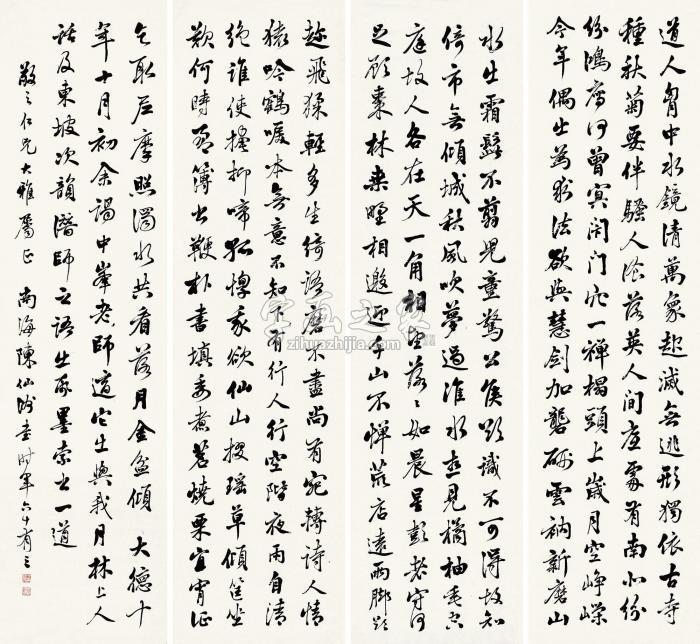 道人胷中水鏡清萬象起滅無逃形獨依古寺
種秋菊要伴騷人飡落英人間底處有南北紛
紛鴻鴈何曾冥閉門穴一禪榻頭上歲月空崢嶸
今年偶出為求法欲與慧劍加礱硎雲衲新磨山
水出霜髭不翦兒童驚公侯欲識不可得故知
倚市無傾城秋風吹夢過淮水想見橘柚垂空
庭故人各在天一角相望落々如晨星彭老守何
足顧棗林桑野相邀迎千山不憚荒店遠兩腳欲
趁飛猱輕多生綺語磨不盡尚有宛轉詩人情
猿吟鶴唳本無意不知下有行人行空階夜雨自清
絕誰使掩抑啼孤惸我欲仙山掇瑤草傾筐坐
歎何時盈簿書鞭朴晝填委煮茗燒栗宜宵征
乞取尼摩照濁水共看落月金盆傾 大德十
年十月初余謁中峯老師道定出與我月林上人
話及東坡次韻潛師之語出紙墨索書一道
敬之仁兄大雅屬正 南海陳仙洲書時年六十有三
字画之家
zihuazhijia.com